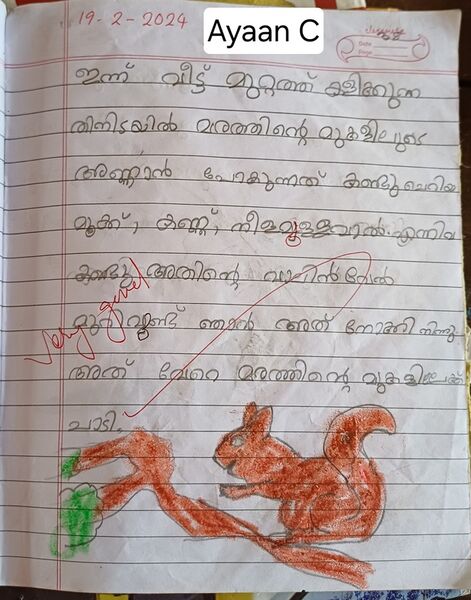 19-2-2024
Ayaan C
Date
Page
ഇന്ന് വീട്ട് മുറ്റത്ത് കളിക്കുന്ന
തിനിടയിൽ മരത്തിന്റെ മുകളിലൂടെ
അണ്ണാൻ പോകുന്നത് കണ്ടു ചെറിയ
മൂക്ക്, കണ്ണ്, നീളമുള്ളവാൽ. എന്നിവ
കണ്ടു അതിന്റെ വാലിൻ
മുറിവുണ്ട് ഞാൻ അത് നോക്കി നിന്നു
അത് വേറെ മരത്തിന്റെ മുകളിലേക്ക്
ചാടി.
Very good